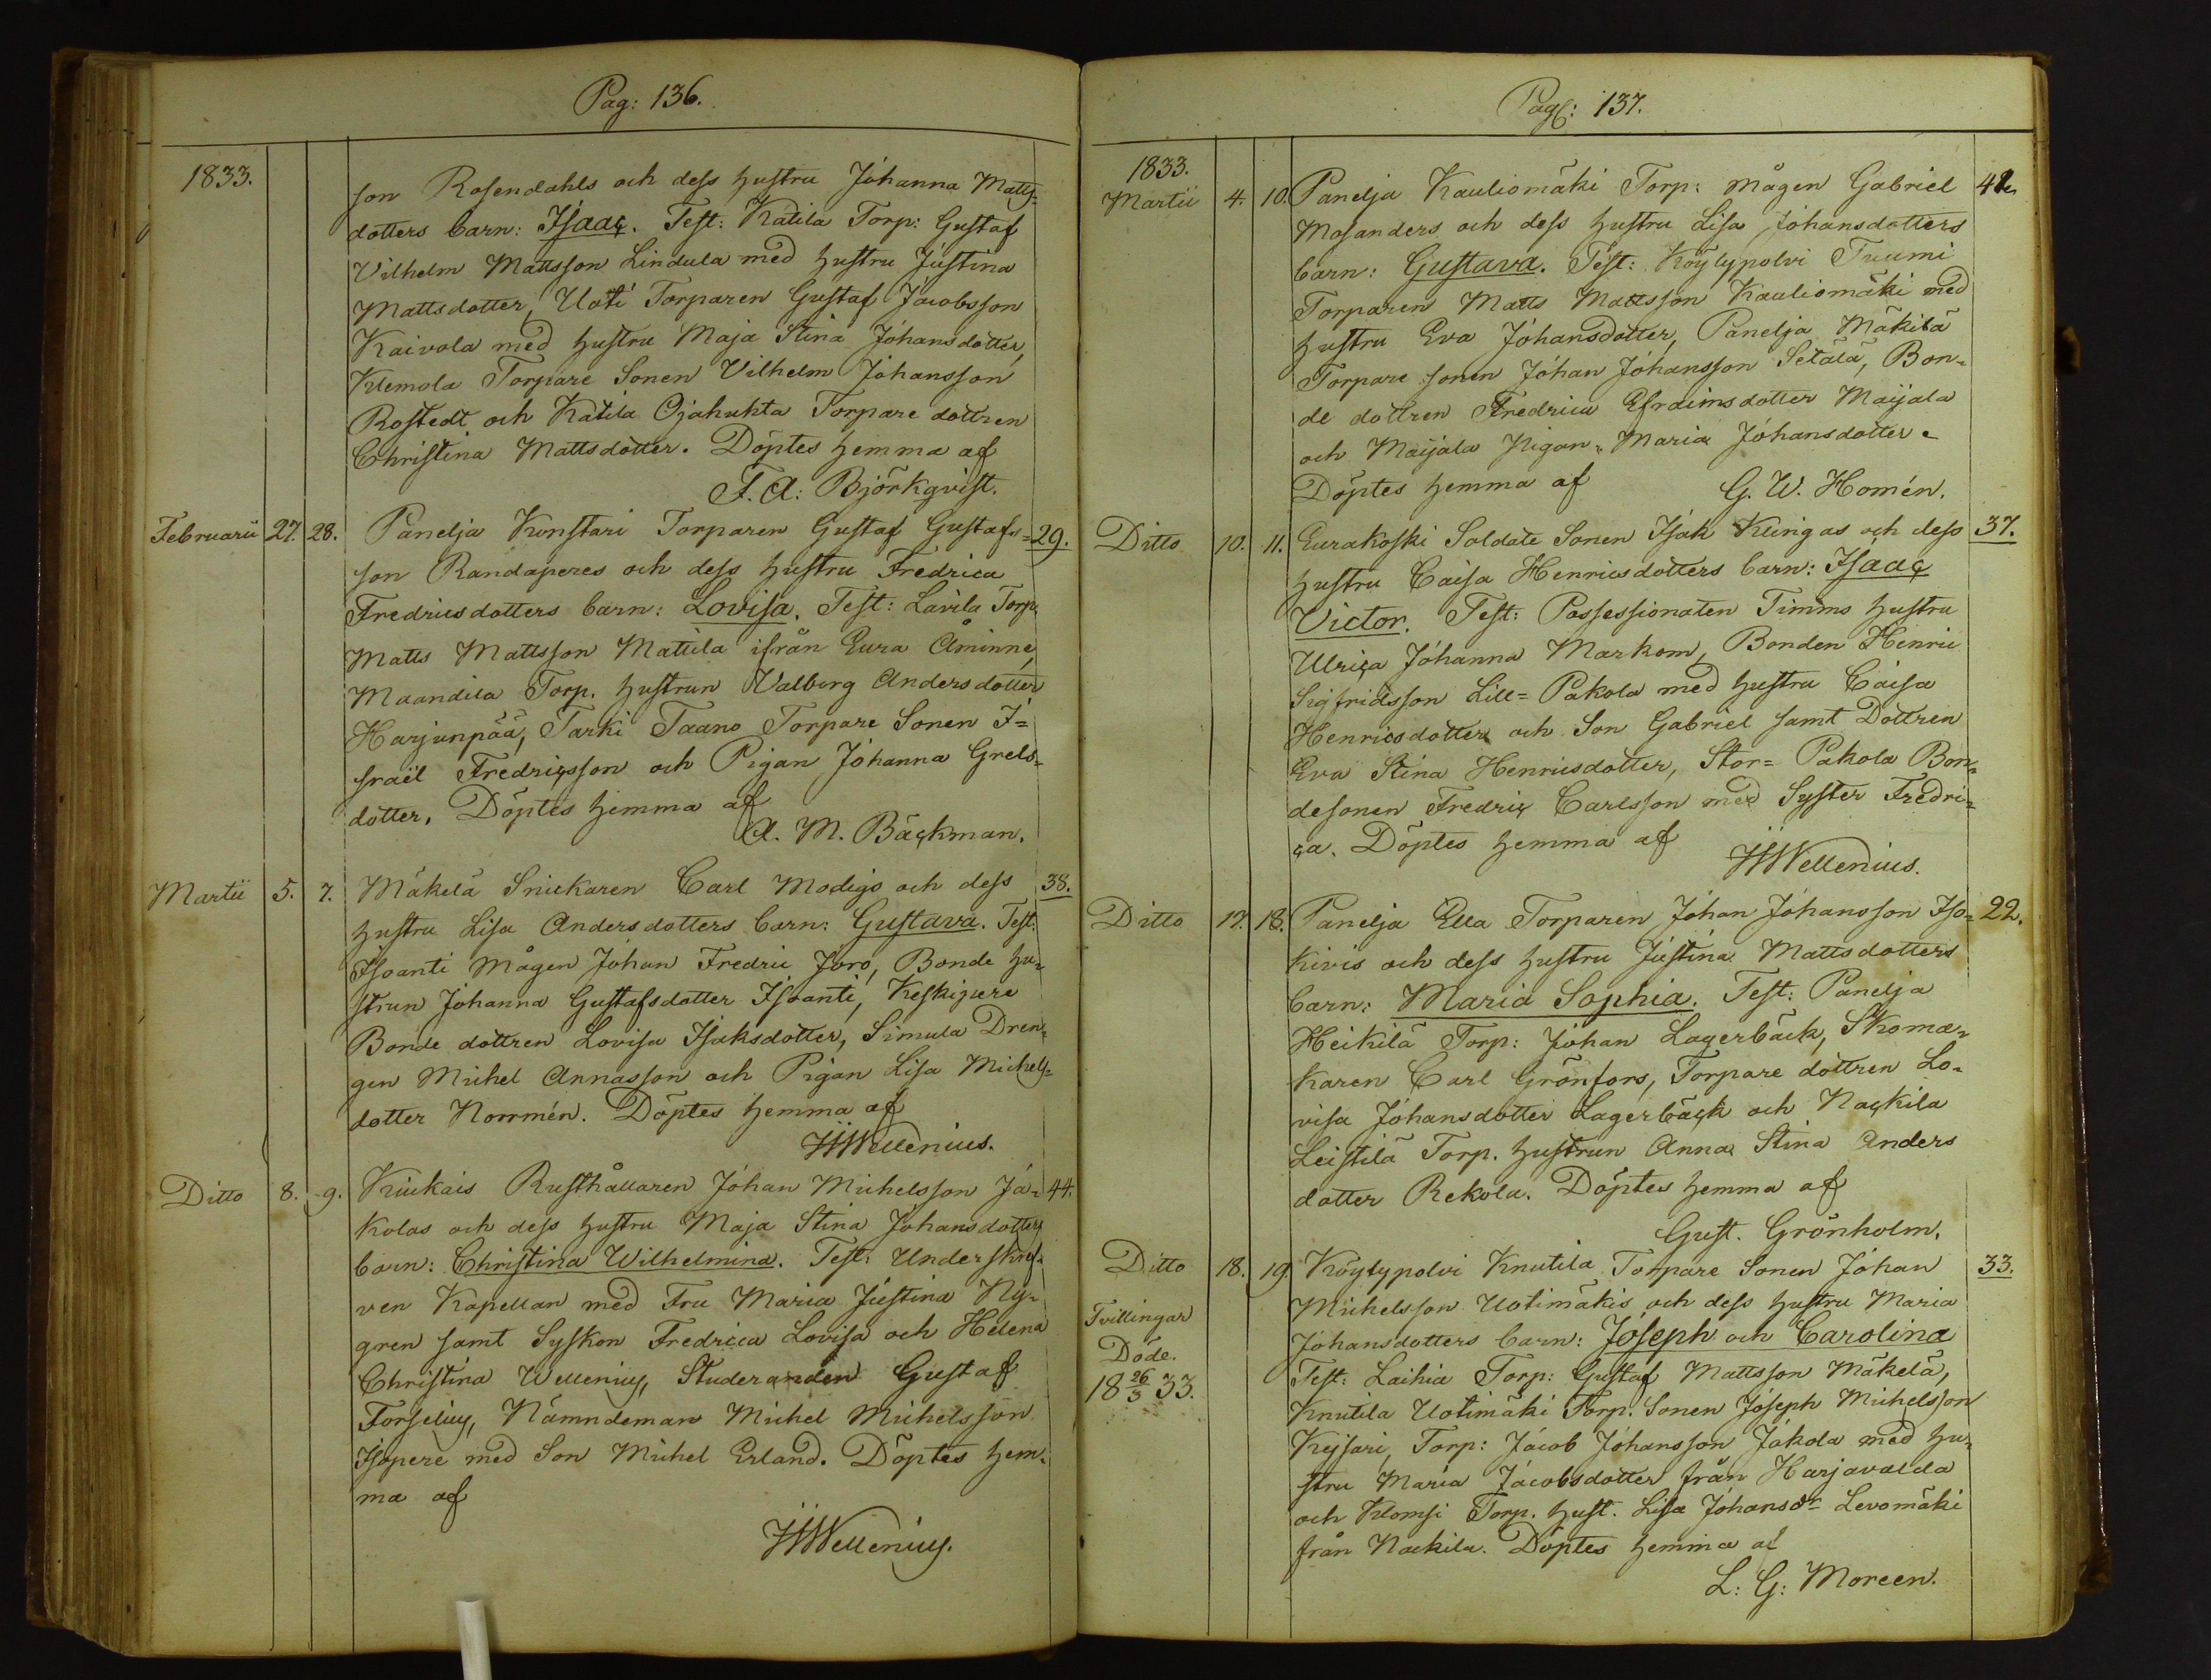 Pag: 136.
1833.
son Rosendahls och dess hustru Johanna Matts=
dotters barn: Isaac. Test: Katila Torp: Gustaf
Vilhelm Mattsson Lindula med hustru Justina
Mattsdotter, Uoti Torparen Gustaf Jacobsson
Kaivola med hustru Maja Stina Johansdotter,
Klemola Torpare Sonen Vilhelm Johansson
Rostedt och Katila Ojahuhta Torpare dottren
Christina Mattsdotter. Döptes hemma af
F. A: Björkqvist.
Februarii 27. 28. Panelja Konstari Torparen Gustaf Gustafs= 29.
son Randaperes och dess hustru Fredrica
Fredricsdotters barn: Lovisa. Test: Lavila Torp.
Matts Mattsson Mattila ifrån Eura Åminne,
Maandila Torp. hustrun Valborg Andersdotter
Harjunpää, Tarki Taano Torpare Sonen I=
sraël Fredricsson och Pigan Johanna Grels=
dotter. Döptes hemma af
A. M. Bäckman.
Martii 5. 7. Mäkelä Snickaren Carl Modigs och dess 38.
hustru Lisa Andersdotters barn: Gustava. Test:
Isoanti Mågen Johan Fredric Joro, Bonde hu=
strun Johanna Gustafsdotter Isoanti, Keskipere
Bonde dottren Lovisa Isaksdotter, Simula Dren=
gen Michel Annasson och Pigan Lisa Michels=
dotter Norrmén. Döptes hemma af
Wellenius.
Ditto 8. 9. Kiukais Rusthållaren Johan Michelsson Ja= 44.
kolas och dess hustru Maja Stina Johansdotters
barn: Christina Wilhelmina. Test: Underskref=
ven Kapellan med Fru Maria Justina Ny=
gren samt Syskon Fredrica Lovisa och Helena
Christina Wellenius, Studeranden Gustaf
Forselius, Nämndeman Michel Michelsson
Isopere med Son Michel Erland. Döptes hem=
ma af
Wellenius.
Pag: 137.
1833.
Martii 4. 10. Panelja Kauliomäki Torp: mågen Gabriel
Mosanders och dess hustru Lisa Johansdotters
barn: Gustava. Test: Köylypolvi Tuumi
Torparen Matts Mattsson Kauliomäki med
hustru Eva Johansdotter, Panelja Mäkilä
Torpare sonen Johan Johansson Setälä, Bon=
de dottren Fredrica Efraimsdotter Maijala
och Maijala Pigan Maria Johansdotter.
Döptes hemma af
G. W. Homén.
Ditto 10. 11. Eurakoski Soldate Sonen Isak Klingas och dess 37.
hustru Caisa Henricsdotters barn: Isaac
Victor. Test: Possessionaten Timms hustru
Ulrica Johanna Markom, Bonden Henric
Sigfridsson Lill= Pakola med hustru Caisa
Henricsdotter och Son Gabriel samt Dottren
Eva Stina Henricsdotter, Stor= Pakola Bon=
desonen Fredric Carlsson med Syster Fredri=
ca. Döptes hemma af
Wellenius.
Ditto 17. 18. Panelja Ella Torparen Johan Johansson Iso= 22.
kivis och dess hustru Justina Mattsdotters
barn: Maria Sophia. Test: Panelja
Heikilä Torp: Johan Lagerbäck, Skoma=
karen Carl Grönfors, Torpare dottren Lo=
visa Johansdotter Lagerbäck och Nackila
Leistilä Torp. hustrun Anna Stina Anders
dotter Rekola. Döptes hemma af
Gust. Grönholm.
Ditto 18. 19. Köylypolvi Knutila Torpare Sonen Johan 33.
Michelsson Uotimäkis och dess hustru Maria
Tvillingar
Johansdotters barn: Joseph och Carolina
Döde.
Test: Laihia Torp: Gustaf Mattsson Mäkelä,
18 26/3 33.
Knutila Uotimäki Torp. Sonen Joseph Michelsson
Keisari, Torp: Jacob Johansson Jakola med hu=
stru Maria Jacobsdotter från Harjavalda
och Klomsi Torp. hust. Lisa Johansdr Levomäki
från Nackila. Döptes hemma af
L: G: Moreen.